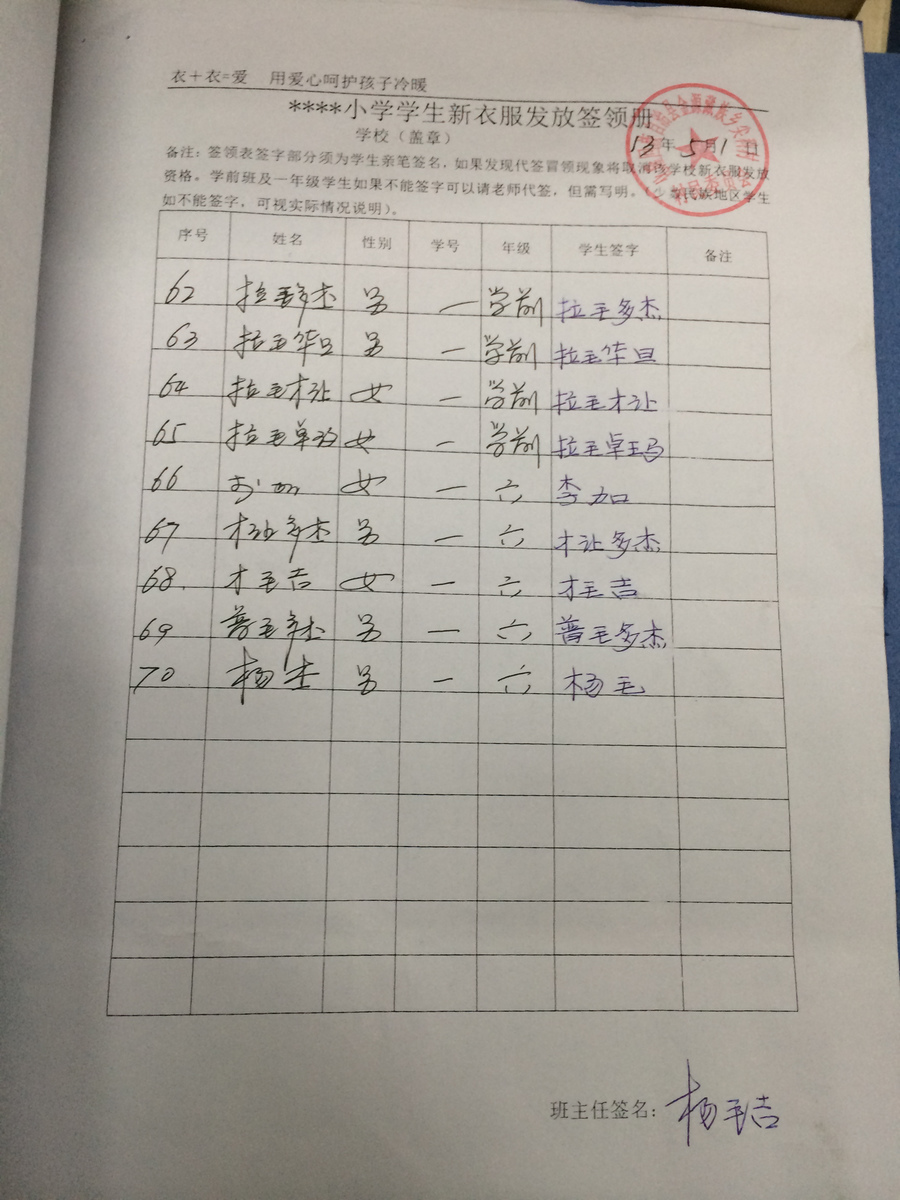 衣+衣=爱 用爱心呵护孩子冷暖
****小学学生新衣服发放签领册
学校（盖章） 13年5月1日
备注：签领表签字部分须为学生亲笔签名，如果发现代签冒领现象将取消该学校新衣服发放
资格。学前班及一年级学生如果不能签字可以请老师代签，但需写明。（少数民族地区学生
如不能签字，可视实际情况说明）。
序号 姓名 性别 学号 年级 学生签字 备注
62 拉毛多杰 男 一 学前 拉毛多杰
63 拉毛华旦 男 一 学前 拉毛华旦
64 拉毛才让 女 一 学前 拉毛才让
65 拉毛卓玛 女 一 学前 拉毛卓玛
66 李加 女 一 六 李加
67 才让多杰 男 一 六 才让多杰
68. 才毛吉 女 一 六 才毛吉
69 普毛多杰 男 一 六 普毛多杰
70 杨 男 一 六 杨毛
班主任签名：杨毛吉